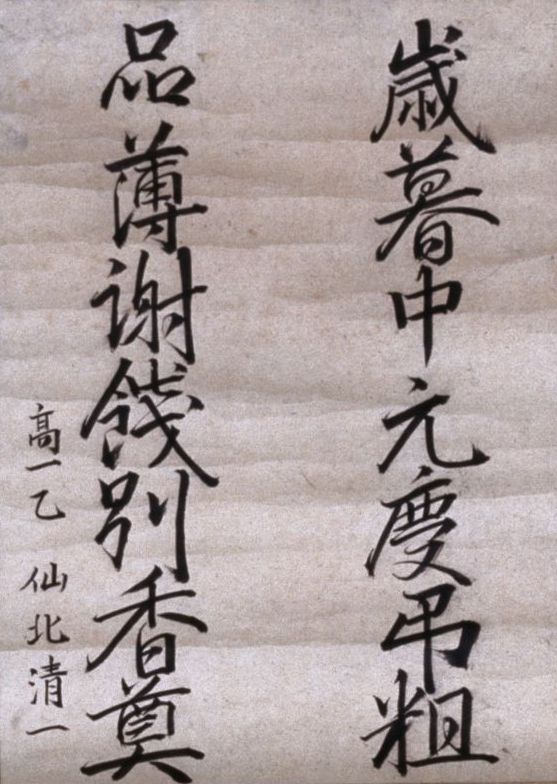 歳暮中元慶弔粗
品薄謝餞別香奠
高一乙 仙北清一